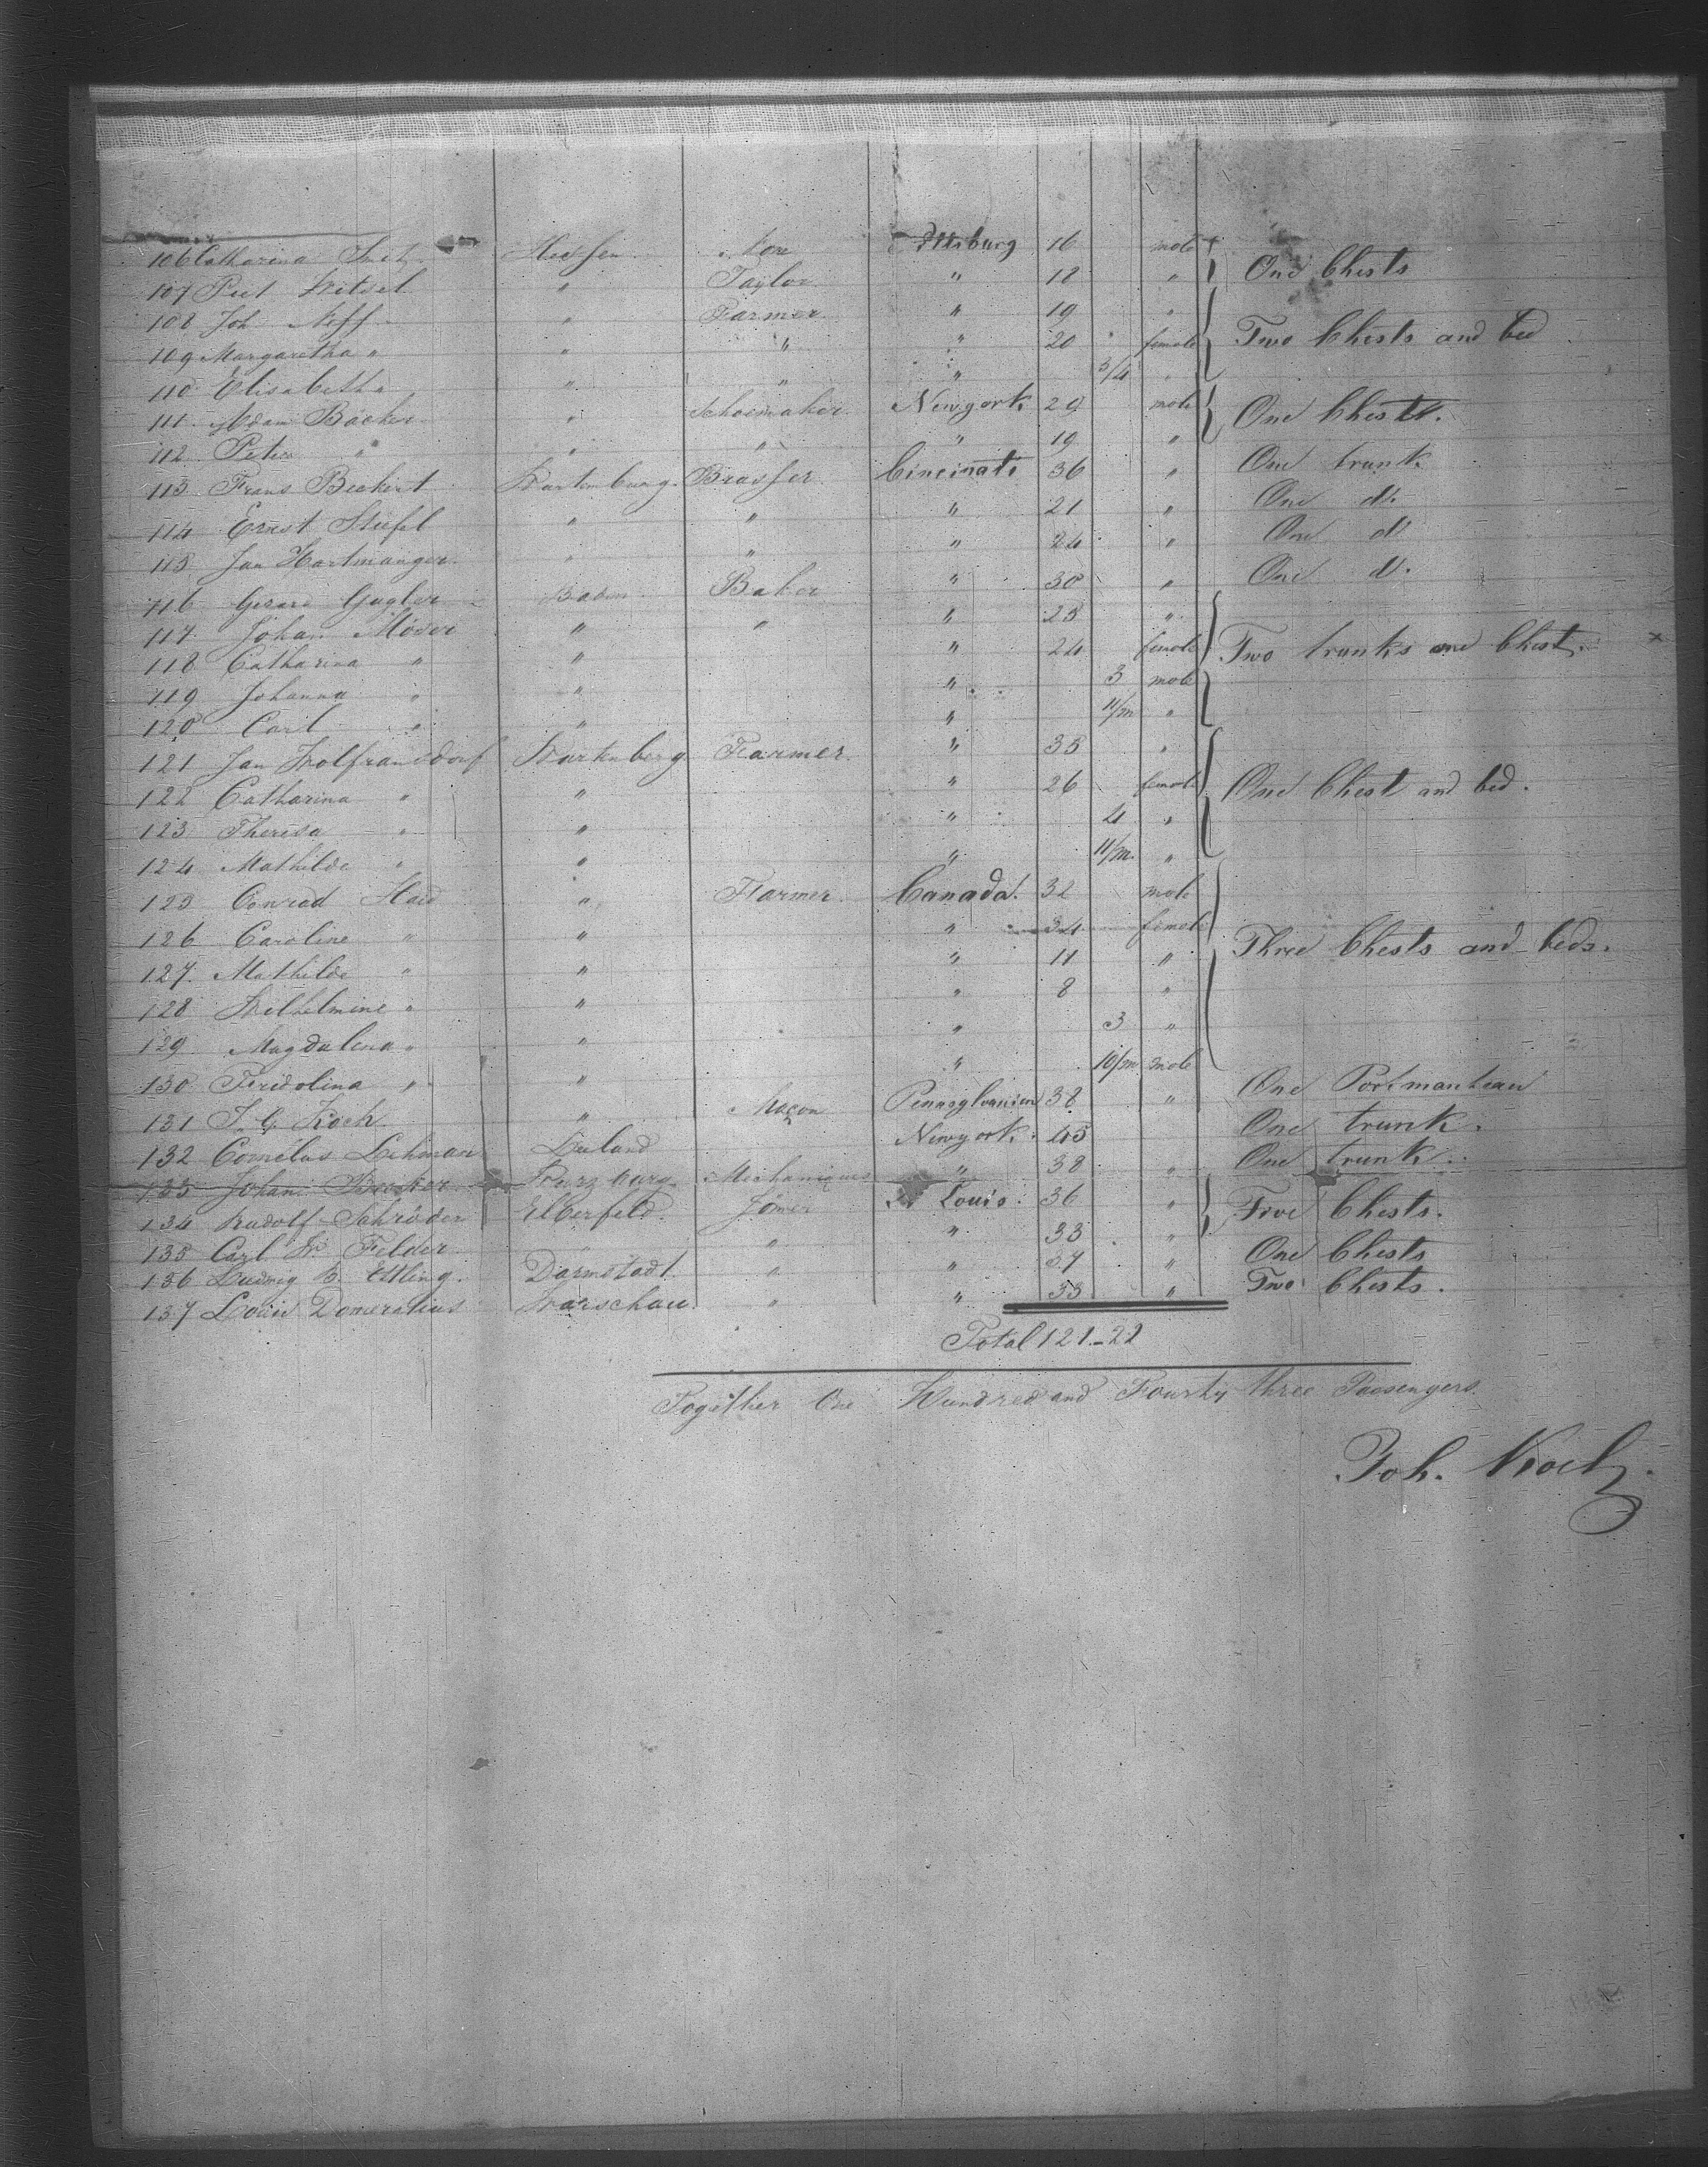 106 Catharina Hessen Pittsburg 16 male
107 Taylor " 18 " One Chests
108 Joh Neff " Farmer " 19 "
109 Margaretha " " " " 20 female Two Chests and bed
110 Elisabetha " " " 3/4 "
111 Adam Bäcker " Schoemaker Newyork 29 male One Chests.
112 Peter " " " " 19 "
113 Frans Beckert Wurtenburg. Brasser Cincinati 36 " One trunk
114 Ernst Stiefel " " " 21 " One do.
115 Jan Hartmanger " " " 24 " One d
116 Gugler Baden Baker " 30 " One d.
117 Johan Möser " " " 25 "
118 Catharina " " " 24 female Two trunks one Chest. x
119 Johanna " " " 3 male
120 Carl " " " 11/m "
121 Jan Wolfransdorf Wurtenberg Farmer " 35 "
122 Catharina " " " 26 female One Chest and bed.
123 Theresa " " " 4 "
124 Mathilde " " " 11/m. "
125 Conrad Haid " Farmer Canada. 32 male
126 Caroline " " " 34 female
127 Mathilde " " " 11 " Three Chests and beds.
128 Wilhelmine " " " 8 "
129 Magdalena " " " 3 "
130 Fridolina " " " 10/m male
131 Koch " Maçon Pennsylvanien 38 " One Portmanteau
132 Cornelus Lehman Newyork 45 One trunk.
133 Johan Mechanicus " 38 " One trunk.
134 Rudolf Schröder Elberfeld St Louis 36 " Five Chests.
135 Carl Felder " " " 33 "
136 Ludwig B. Ettling. Darmstadt " " 37 " One Chests
137 Louis Domeratius Warschau " " 33 " Two Chests.
Total 121-22
Together One Hundred and Fourty three Passengers.
Joh. Koch.